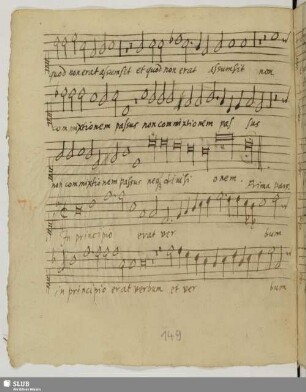 quod non erat assumsit et quod non erat assumsit non
commixtionem passus non commixtionem pas sus
non commixtionem passus neq divisi onem. Prima pars.
In principio erat ver bum
in principio erat verbum et ver bum
149
SLUB